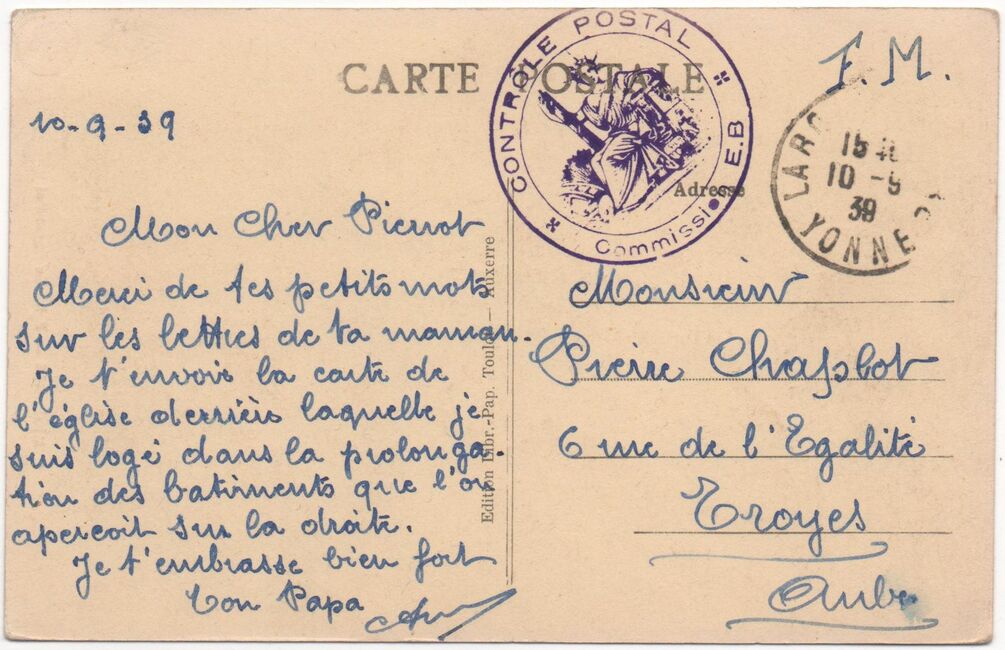 CARTE POSTALE
F. M.
CONTRÔLE POSTAL
Commission E.B
15 4
10 - 9
39
YONNE
10-9-39
Adresse
Mon Cher Pierrot
Merci de tes petits mots
sur les lettres de ta maman.
Je t'envoie la carte de
l'église derrière laquelle je
suis logé dans la prolonga-
tion des batiments que l'on
apercoit sur la droite.
Je t'embrasse bien fort
Ton Papa
Edition Libr.-Pap. Toulot – Auxerre
Monsieur
Pierre Chaplot
6 rue de l'Egalité
Troyes
Aube